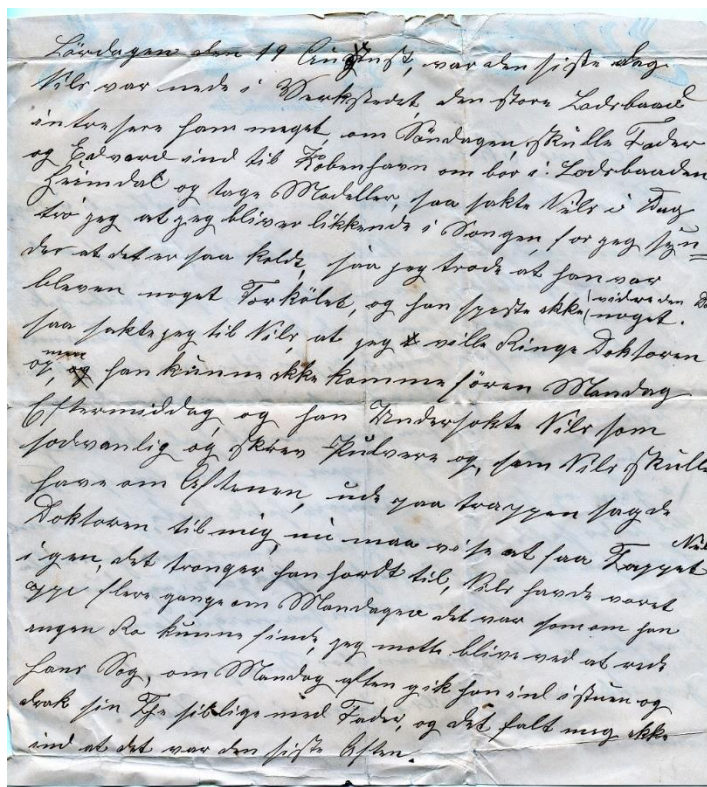 Lördagen den 19 August, var den siste Dag
Nils var nede i Verkstedet, den store Lodsbaad
intresere ham meget, om Söndagen, skulle Fader
og Edvard ind til Köbenhavn om bor i Lodsbaaden
Heimdal og tage Modeller, saa sakte Nils i Dag
tro jeg at jeg bliver likkende i Sengen, for jeg syn=
des at det er saa koldt, saa jeg trode at han var
bleven noget Forkölet, og han spiste ikke noget.
saa sakte jeg til Nils, at jeg ville Ringe Doktoren
op, men han kunne ikke komme fören Mandag
Eftermiddag, og han Undersokte Nils som
sedvanlig og skrev Pulvere op, som Nils skulle
have om Aftenen, ude paa trappen sagde
Doktoren til mig, nu maa vi se at faa Tappet Nils
igen, det tronger han hardt til, Nils havde voret
oppe flere gange om Mandagen det var som om han
engen Ro kunne finde, jeg motte blive ved at rede
hans Seg, om Mandag aften gik han ind i stuen og
drak sin The med Fader, og det falt meg ikke
ind at det var den siste Aften.